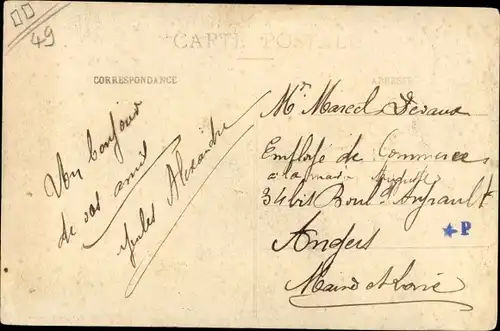 49
CARTE POSTALE
CORRESPONDANCE
ADRESSE
Un bonjour
de vos amis
Jules Alexandre
Mr Marcel Devaux
Employé de Commerce
à la
34 bis Boul.
Angers
Maine et Loire
P